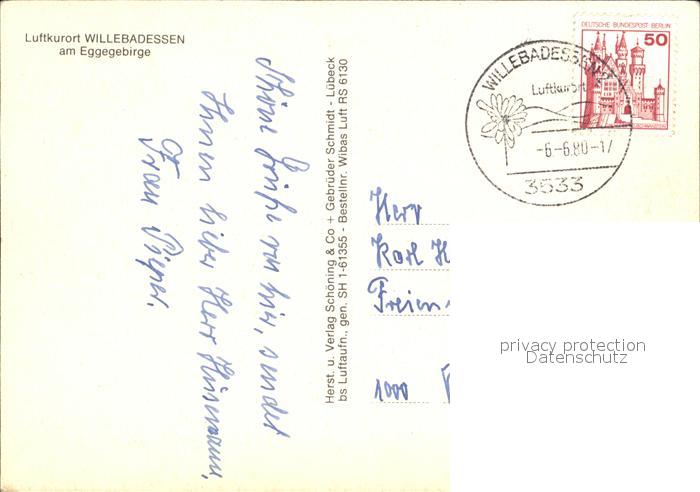 Luftkurort WILLEBADESSEN
am Eggegebirge
Schöne Grüße von hier, sendet
Ihnen lieber Herr Hüsemann,
Frau Pieper.
Herst. u. Verlag Schöning & Co + Gebrüder Schmidt - Lübeck
bs Luftaufn., gen. SH 1-61355 - Bestellnr. Wibas Luft RS 6130
DEUTSCHE BUNDESPOST BERLIN
50
WILLEBADESSEN
Luftkurort
-6.-6.80-17
3533
Herr
Karl H
Freien
1000
privacy protection
Datenschutz